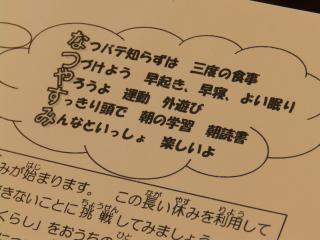 なつバテ知らずは 三度の食事
つづけよう 早起き、早寝、よい眠り
やろうよ 運動 外遊び
すっきり頭で 朝の学習 朝読書
みんなといっしょ 楽しいよ
みが始まります。 この長い休みを利用して
はじ なが やす りよう
きないことに挑戦してみましょう
ちょうせん
くらし」をおうちの